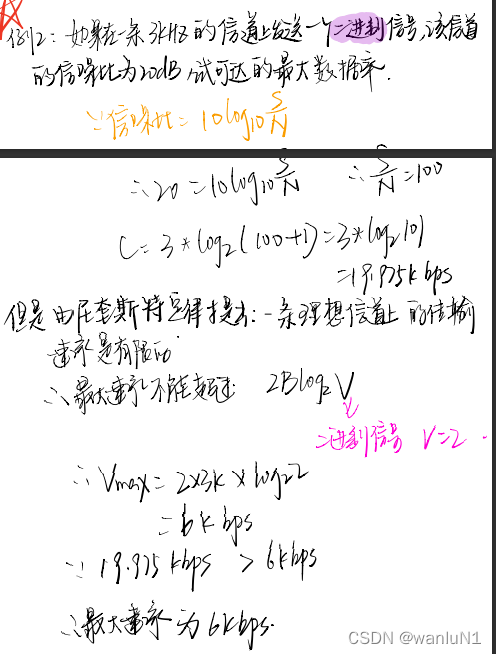 例2：如果在一条3kHz的信道上发送一个二进制信号，该信道
的信噪比为20dB，试可达的最大数据率.
∵信噪比=10log10 S/N
∴20=10log10 S/N ∴S/N=100
C=3*log2(100+1)=3*log2101
=19.975kbps
但是由尼奎斯特定律提出：一条理想信道上的传输
速率是有限的
∴最大速率不能超过 2Blog2V
二进制信号 V=2.
∴Vmax=2×3k×log22
=6kbps
∵19.975kbps>6kbps
∴最大速率为6kbps.
CSDN @wanluN1